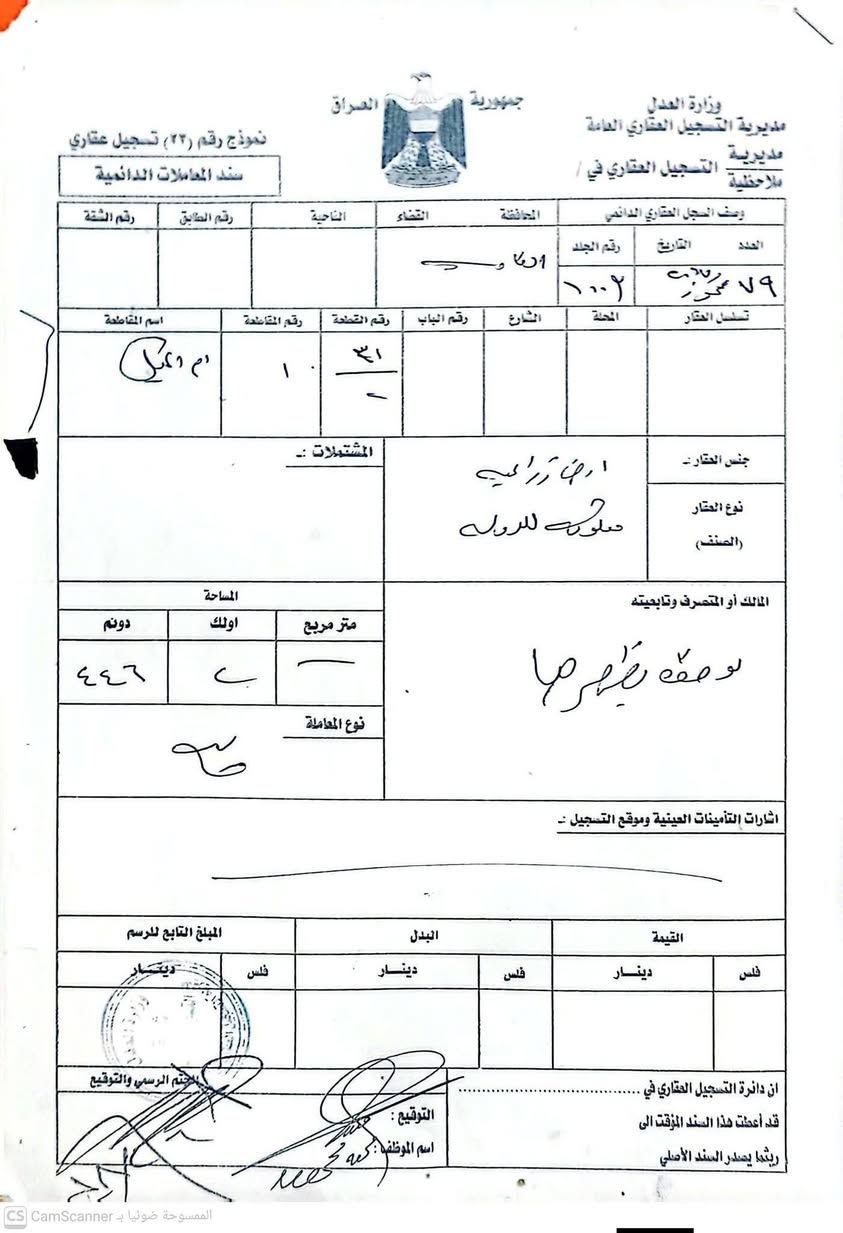 جمهورية العراق
وزارة العدل
مديرية التسجيل العقاري العامة
مديرية
ملاحظية
التسجيل العقاري في /
نموذج رقم (٢٣) تسجيل عقاري
سند المعاملات الدائمية
وصف السجل العقاري الدائمي
المحافظة القضاء الناحية رقم الطابق رقم الشقة
العدد التاريخ رقم الجلد
٧٩
تسلسل العقار المحلة الشارع رقم الباب رقم القطعة رقم المقاطعة اسم المقاطعة
٣١
٢
١٠
ام
جنس العقار :ـ
ارض زراعية
نوع العقار
(الصنف)
مملوكة للدولة
المشتملات :ـ
المالك أو المتصرف وتابعيته
المساحة
متر مربع اولك دونم
— ٢ ٤٤٦
نوع المعاملة
اشارات التأمينات العينية وموقع التسجيل :ـ
القيمة البدل المبلغ التابع للرسم
فلس دينار فلس دينار فلس دينار
ان دائرة التسجيل العقاري في ........................
قد أعطت هذا السند المؤقت الى
ريثما يصدر السند الأصلي
التوقيع :
اسم الموظف :
الختم الرسمي والتوقيع
CS CamScanner الممسوحة ضوئيا بـ